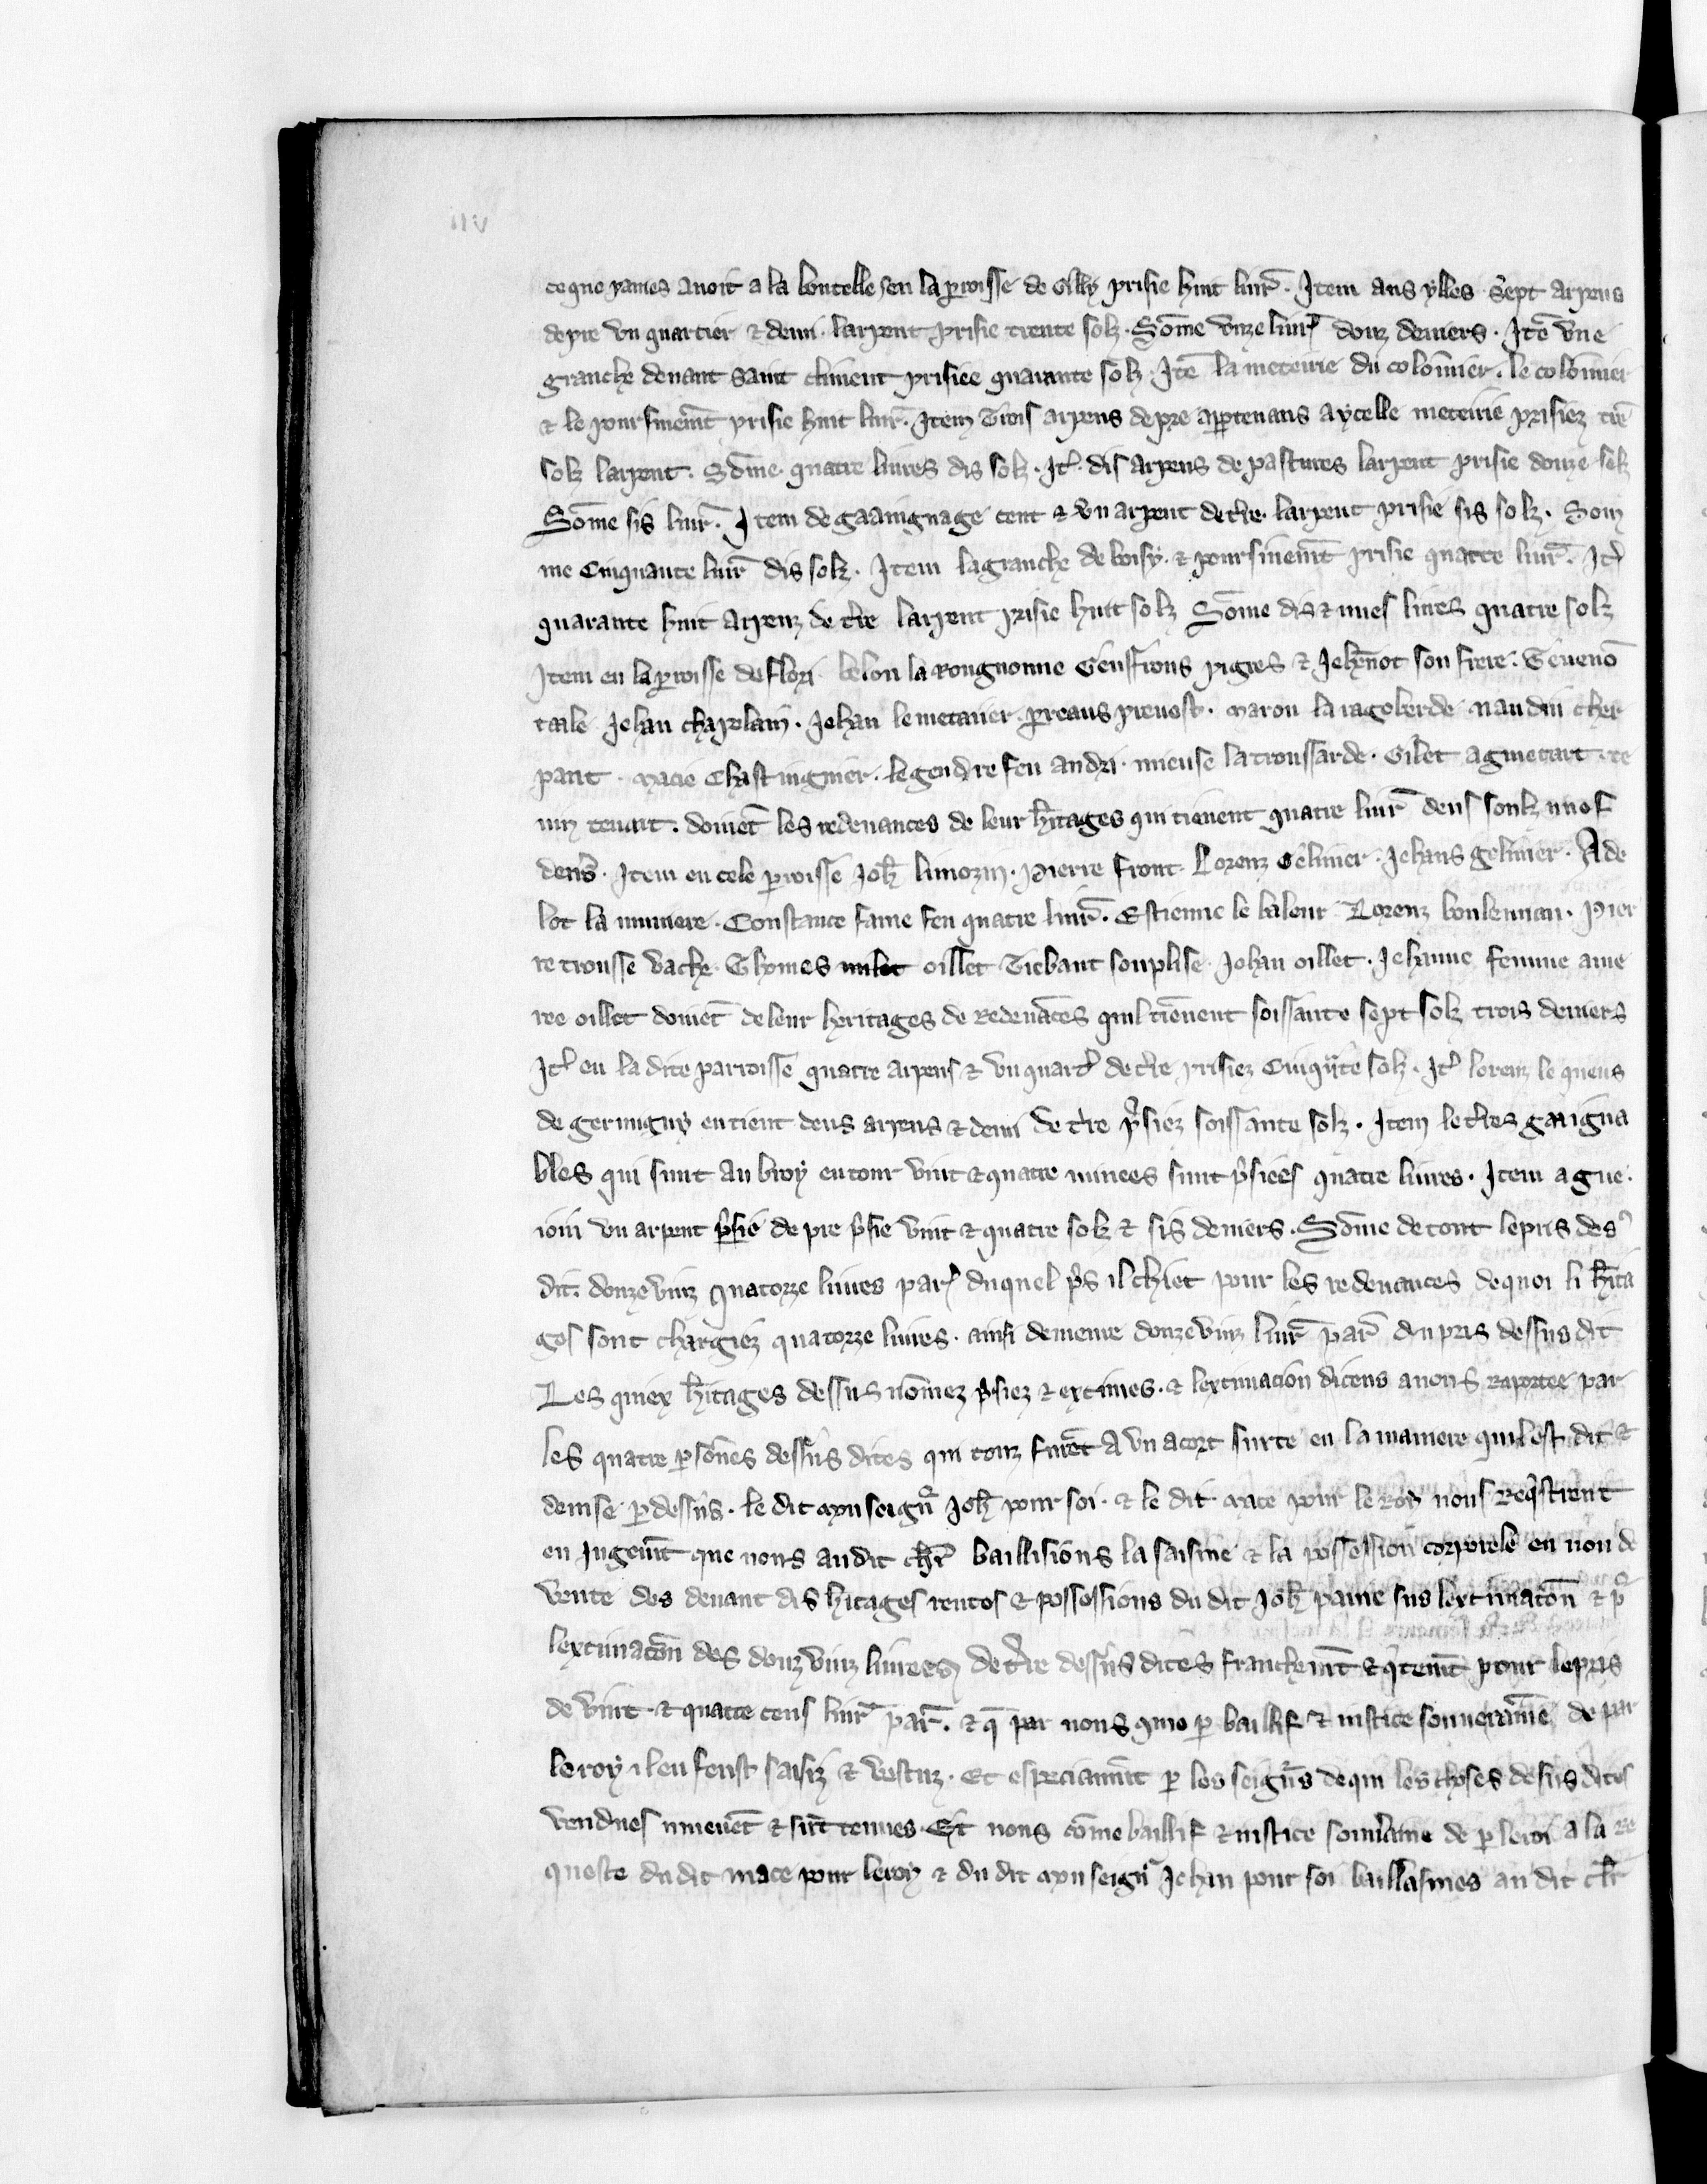 ce que pames auoit a la boucelle sen la proisse de Gilly prisie huit liur̄. Item aus ylles sept arpens
de pre vn quartier & demi. larpent prisie trente solz. Som̄e vnze liur̄ douz deniers. Itē vne
granche deuant saint climent prisiee quarante solz. Itē la meteirie du colōmier. le colōmier
& le poursinem̄t prisie huit liur̄. Item Trois arpens de pre aptenans a ycelle meteirie prisiez trē
solz larpent. Som̄e quatre liures dis solz. It̄. dis arpens de pastures larpent prisie douze solz
Som̄e sis liur̄. Item de gaaingnage cent & vn arpent de t̄re. larpent prisie sis solz. Som
me Cinquante liur̄ dis solz. Item la granche de boisy. & poursinem̄t prisie quatre liur̄. It̄
quarante huit arpenz de t̄re larpent prisie huit solz Som̄e dis & nues liures quatre solz
Item en la proisse de flori belon la Rongnonne Geuffrons pigres & Jehēnot son frere. Geuenō
tale Jehan chapelain. Jehan le metaier. preaus preuost. maron la rageberde naudin cher
pant. macie Chastingnier. le gendre feu andri. mieuse la troussarde. Gilet aguietart. re
my tenart. doiuēt les redeuances de leur h̄itages qui tienent quatre liur̄ deus soulz nuef
den̄s. Item en cele proisse Joh̄ limozin. Pierre front. Lorenz Gelinier. Jehans gelinier. Ade
lot la muniere. Constance fame feu quatre liur̄. Estienne le baleur Lorenz boulennan. Pier
re trousse vache. Thomes milet oillet Tiebaut souplise. Johan oillet. Jehanne femme ame
ree oillet doiuēt de leur heritages de Redeuāces quil tiēnent soissante sept solz trois deniers
It̄ en la dite parroisse quatre arpens & vn quart̄ de t̄re prisiez Cinqūte solz. It̄ lorenz le queus
de germigny en tient deus arpens & demi de t̄re p̄siez soissante solz. Item le t̄res gaigna
bles qui sunt au broy entour vint & quatre minees sunt p̄siees quatre liures. Item a gue.
ioin vn arpent p̄sie de pre p̄sie vint & quatre solz & sis deniers. Som̄e de tout le pris des
dit. douze vinz quatorze liures par̄ duquel p̄s il chiet pour les redeuances de quoi li h̄ita
ges sont chargiez quatorze liures. ainsi demeure douze vinz liur̄ par̄ du pris dessus dit
Les quiex h̄itages dessus nōmez p̄siez & extimes. & lextimacion dicens auons raportee par
les quatre psōnes dessus dites qui touz furēt a vn acort surce en la maniere quil est dit &
deuise p dessus. le dit mon seign̄ Joh̄ pour soi. & le dit mace pour le Roy nous Req̄strent
en Jugem̄t que nous au dit ch̄r baillisions la saisine & la possession corporele en non de
vente des deuant dis h̄itages rentes & possessions du dit Joh̄ pame sus lextimacōn & p̄
lextimacōn des douz vinz liurees de t̄re dessus dites franchem̄t & q̄tem̄t pour le pris
de vint & quatre cens liur̄ par̄. & q̄ par nous que p baillif & iustice souuerāme de par
le roy il en feust saisiz & vestuz. Et especiaum̄t p les seign̄s de qui les choses desus dites
vendues mieuēt & sūt tenues. Et nous cōme baillif & iustice souueraine de p le roi a la re
queste du dit mace pour le roy & du dit mon seign̄ Jehan pour soi baillasmes au dit ch̄r